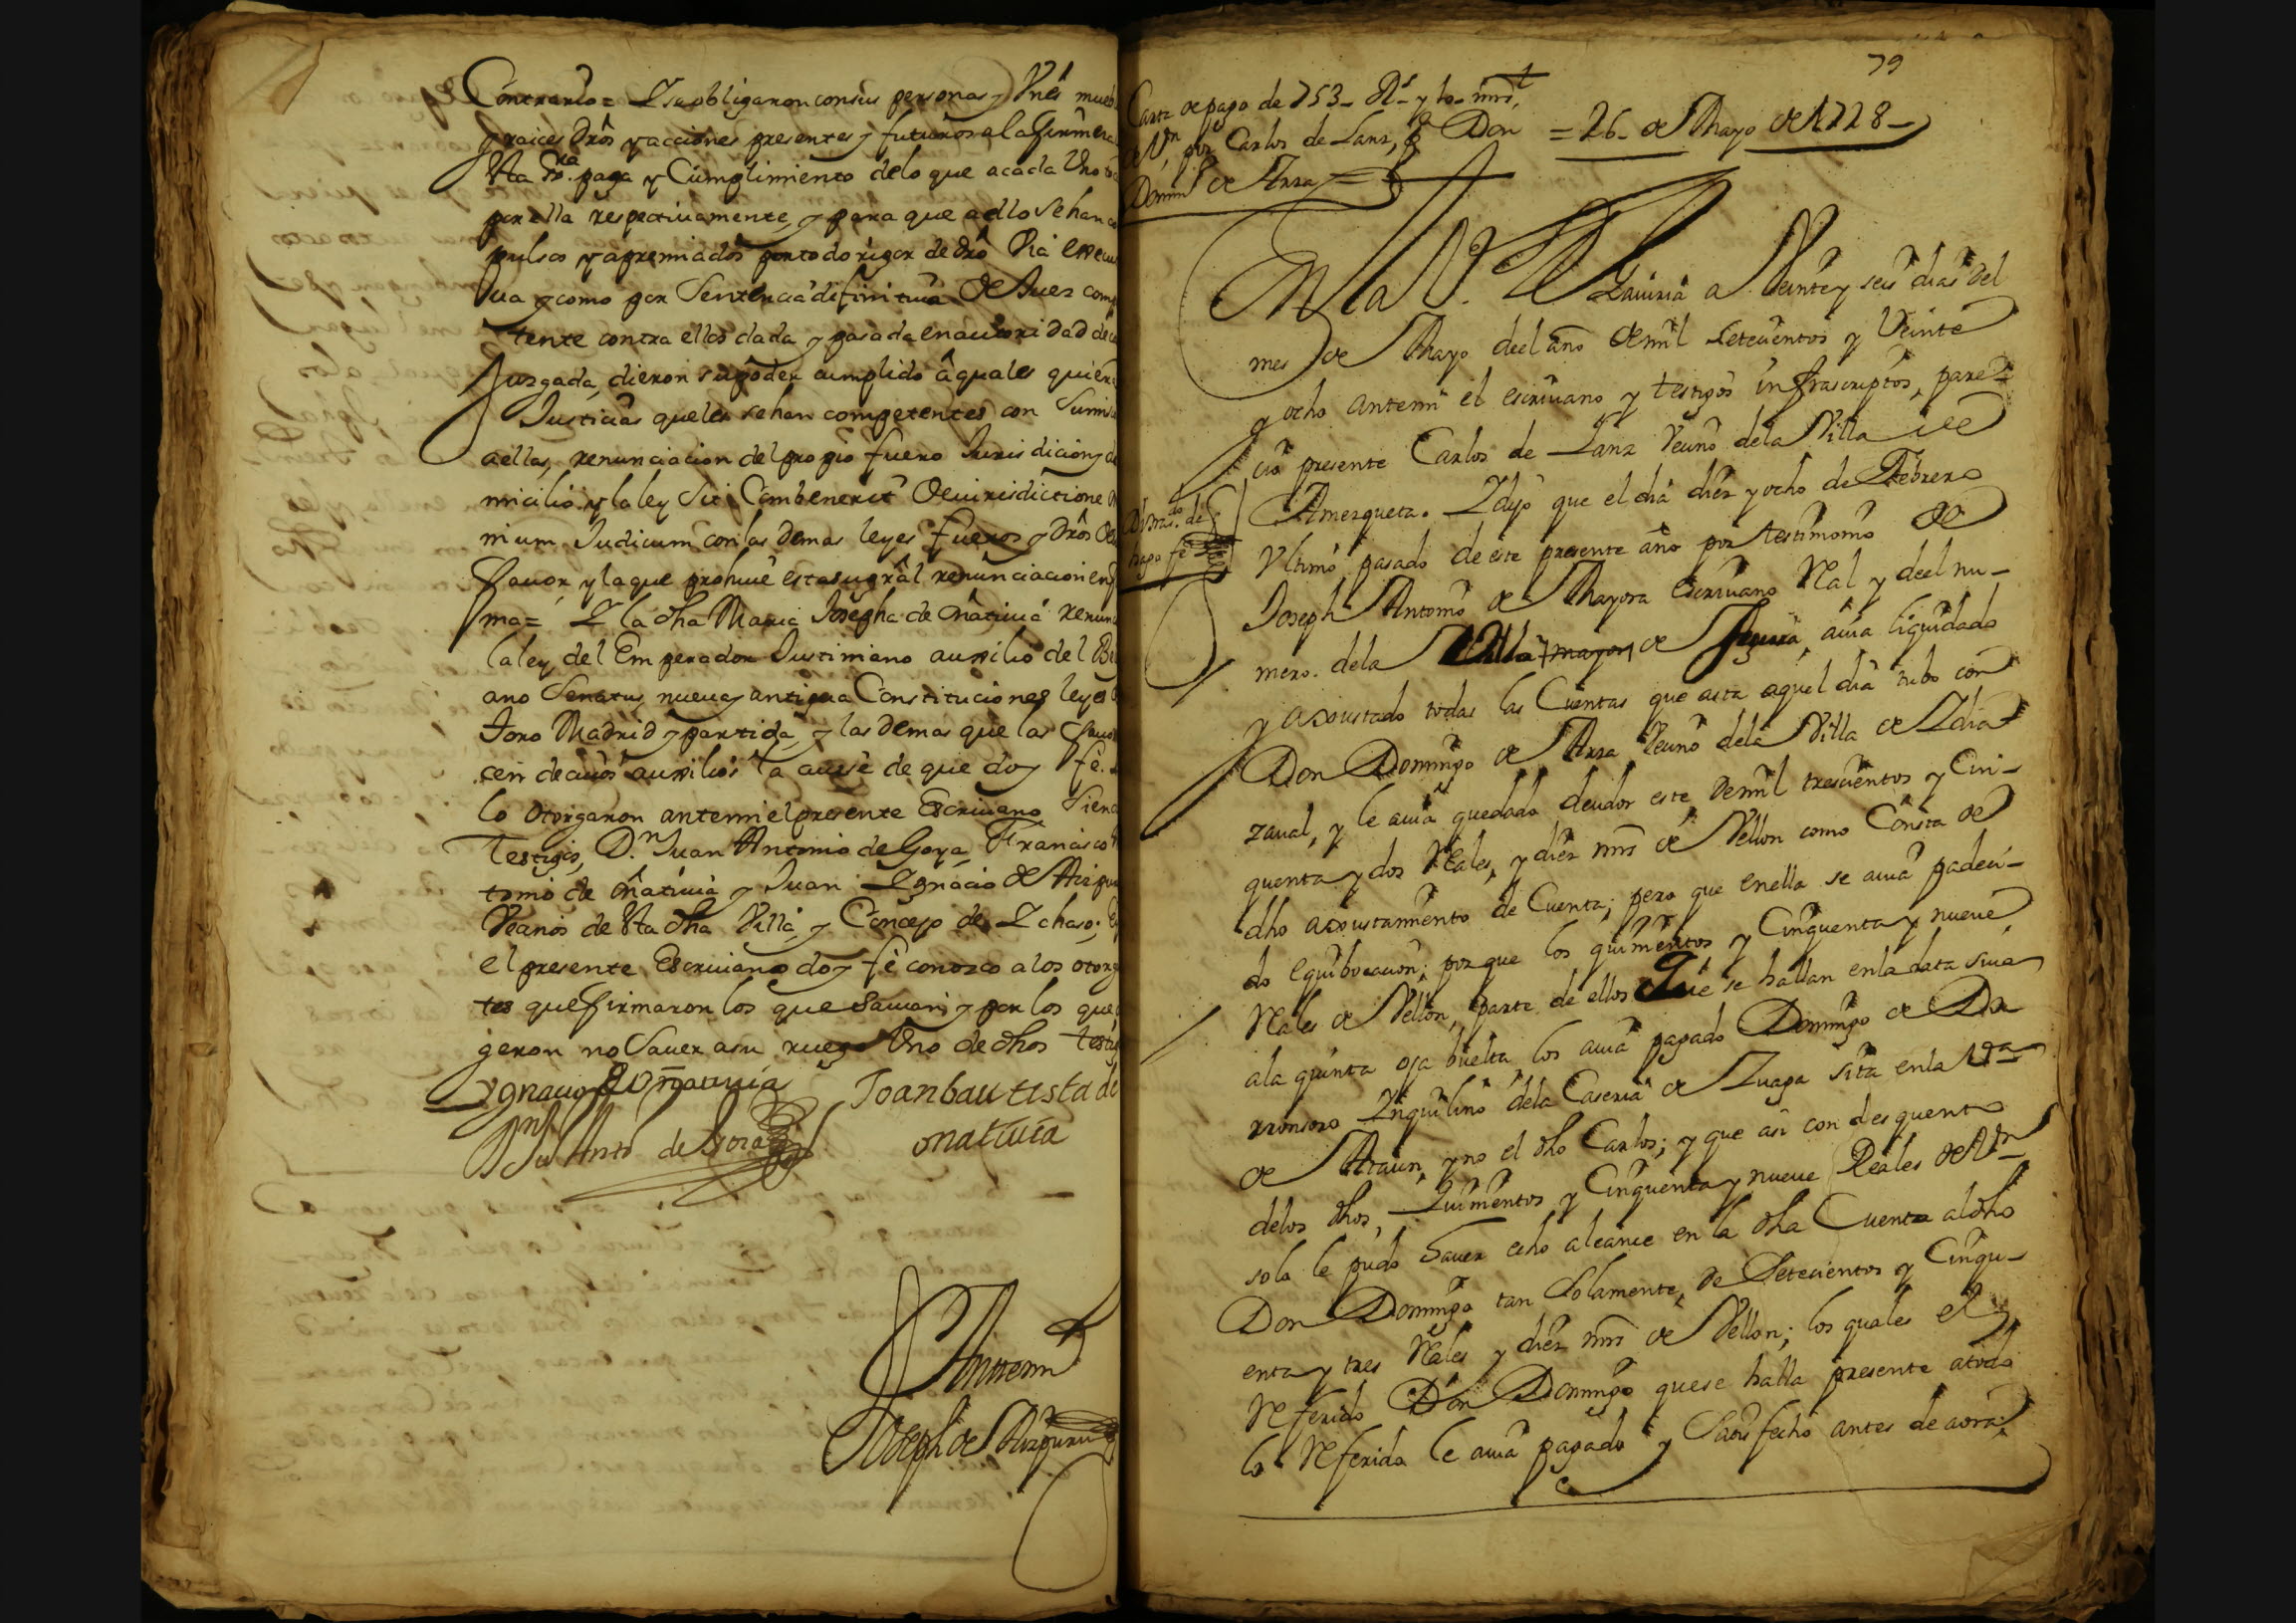 Contrario = Y se obligaron con sus personas, y Vnēs mueb
y raices drōs y acciones presentes y futuros a la firmeza
Vta Scra. paga y Cumplimiento de lo que a cada Vno
por ella respectiuamente, y para que a ello se han
pulsos y apremiados por todo rigor de drō Via execu
ua y como por Sentencia difinitiua de Juez comp
tente contra ellos dada y pasada en autoridad de
Juzgada, dieron su poder cumplido â quales quiera
Justicias que les sehan competentes con Sumi
a ellas, renunciacion del propio fuero Jurisdicion y
micilio y la ley Sit Combenerit De iurisdictione
nium Judicum con las demas leyes fueros y drōs de
fauor, y la que prohiue esta su grāl renunciacion en
ma = Y la dha Maria Josepha de Oñatiuia renun
la ley del Emperador Justiniano auxilio del
ano Senatus, nueua y antigua Constituciones leyes
Toro Madrid y partida, y las demas que las fauor
cen de cuios auxilios la auise de que doy fê.
lo otorgaron antemi el presente Escriuano Siend
Testigos, D.n Juan Antonio de Goya, Francisco
tonio de Oñatiuia y Juan Ygnacio de Aizpu
Vecinos de Vta dha Villa, y Concejo de Ychaso; Y
el presente Escriuano doy fê conozco a los otorg
tes que firmaron los que Sauian y por los que
geron no Sauer a su ruego Vno de dhos testig
Ygnacio de Oñatiuia Joanbautista de
oñatiuia
Dn Ju Anto de Goya
Antemi
Joseph de Aizpuru
79
Carta de pago de 753_ Rs_ y 10_ mrs,
de Vn, por Carlos de Lanz, a Don
Domingo de Arza =
= 26_ de Mayo de 1728_
En la V.a de Lauiria a Veinte y seis dias del
mes de Mayo deel año de mil Setecientos y Veinte
y ocho antemi el escriuano y testigos infrascriptos, pare-
cio presente Carlos de Lanz Vecino de la Villa de
Amezqueta. Y dijo que el dia diez y ocho de Febrero
Vltimo pasado de este presente año por testimonio de
Joseph Antonio de Mayora Escriuano Real y deel nu-
mero de la Villa mayor de Segura, auia liquidado
y axustado todas las Cuentas que asta aquel dia tubo con
Don Domingo de Arza Vecino de la Villa de Ydia-
zaual, y le auia quedado deudor este, de mil trescientos y Cin-
quenta y dos Reales, y diez mrs de Vellon como Consta de
dho axustamiento de Cuenta; pero que en ella se auia padeci-
do equibocacion; porque los quinientos y Cinquenta y nueue
Reales de Vellon, parte de ellos que se hallan en la data suia
a la quinta oja buelta, los auia pagado Domingo de
rronsoro Ynquilino de la Caseria de Zuaga sita en la Va
de Ataun, y no el dho Carlos; y que asi con desquento
de los dhos, Quinientos y Cinquenta y nueue Reales de Vn
solo le pudo hauer echo alcance en la dha Cuenta al dho
Don Domingo tan Solamente, de Setecientos y Cinqu-
enta y tres Reales y diez mrs de Vellon; los quales el
Referido Don Domingo que se halla presente a todo
lo Referido le auia pagado y Satisfecho antes de aora;